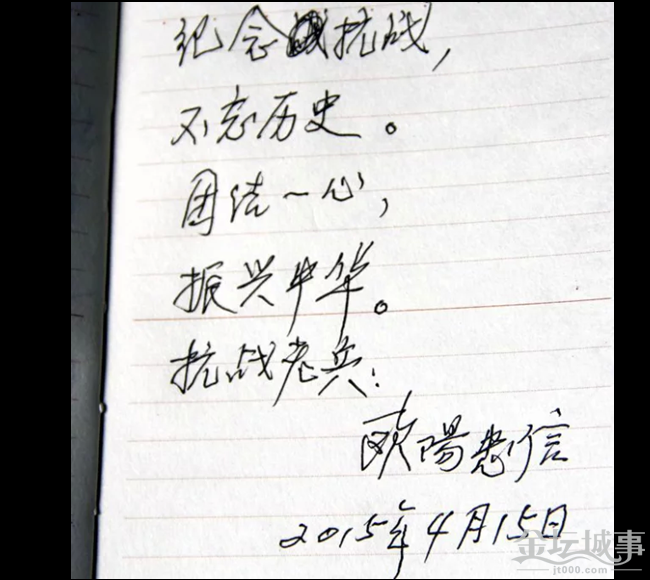 纪念抗战,
不忘历史。
团结一心,
振兴中华。
抗战老兵:
欧陽惠信
2015年4月15日
金坛城事
jt000.com